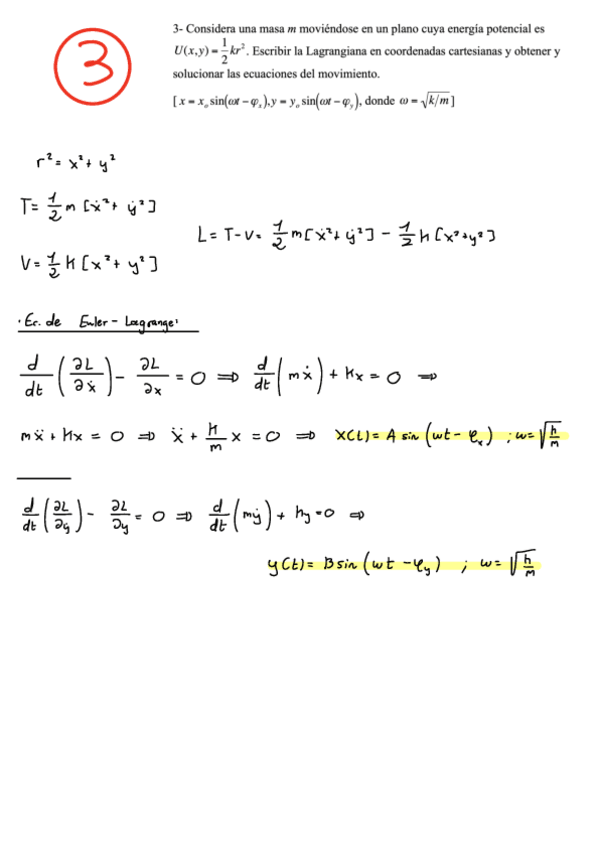 3
3- Considera una masa m moviéndose en un plano cuya energía potencial es
U(x,y) = 1/2 kr². Escribir la Lagrangiana en coordenadas cartesianas y obtener y
solucionar las ecuaciones del movimiento.
[ x = xₒ sin(ωt − φₓ), y = yₒ sin(ωt − φᵧ), donde ω = √k/m ]
r² = x² + y²
T = 1/2 m [ẋ² + ẏ²]
L = T - V = 1/2 m [ẋ² + ẏ²] - 1/2 k [x² + y²]
V = 1/2 k [x² + y²]
· Ec. de Euler - Lagrange:
d/dt (∂L/∂ẋ) - ∂L/∂x = 0 ⇒ d/dt (mẋ) + kx = 0 ⇒
mẍ + kx = 0 ⇒ ẍ + k/m x = 0 ⇒ x(t) = A sin (ωt - φₓ) ; ω = √k/m
d/dt (∂L/∂ẏ) - ∂L/∂y = 0 ⇒ d/dt (mẏ) + ky = 0 ⇒
y(t) = B sin (ωt - φᵧ) ; ω = √k/m